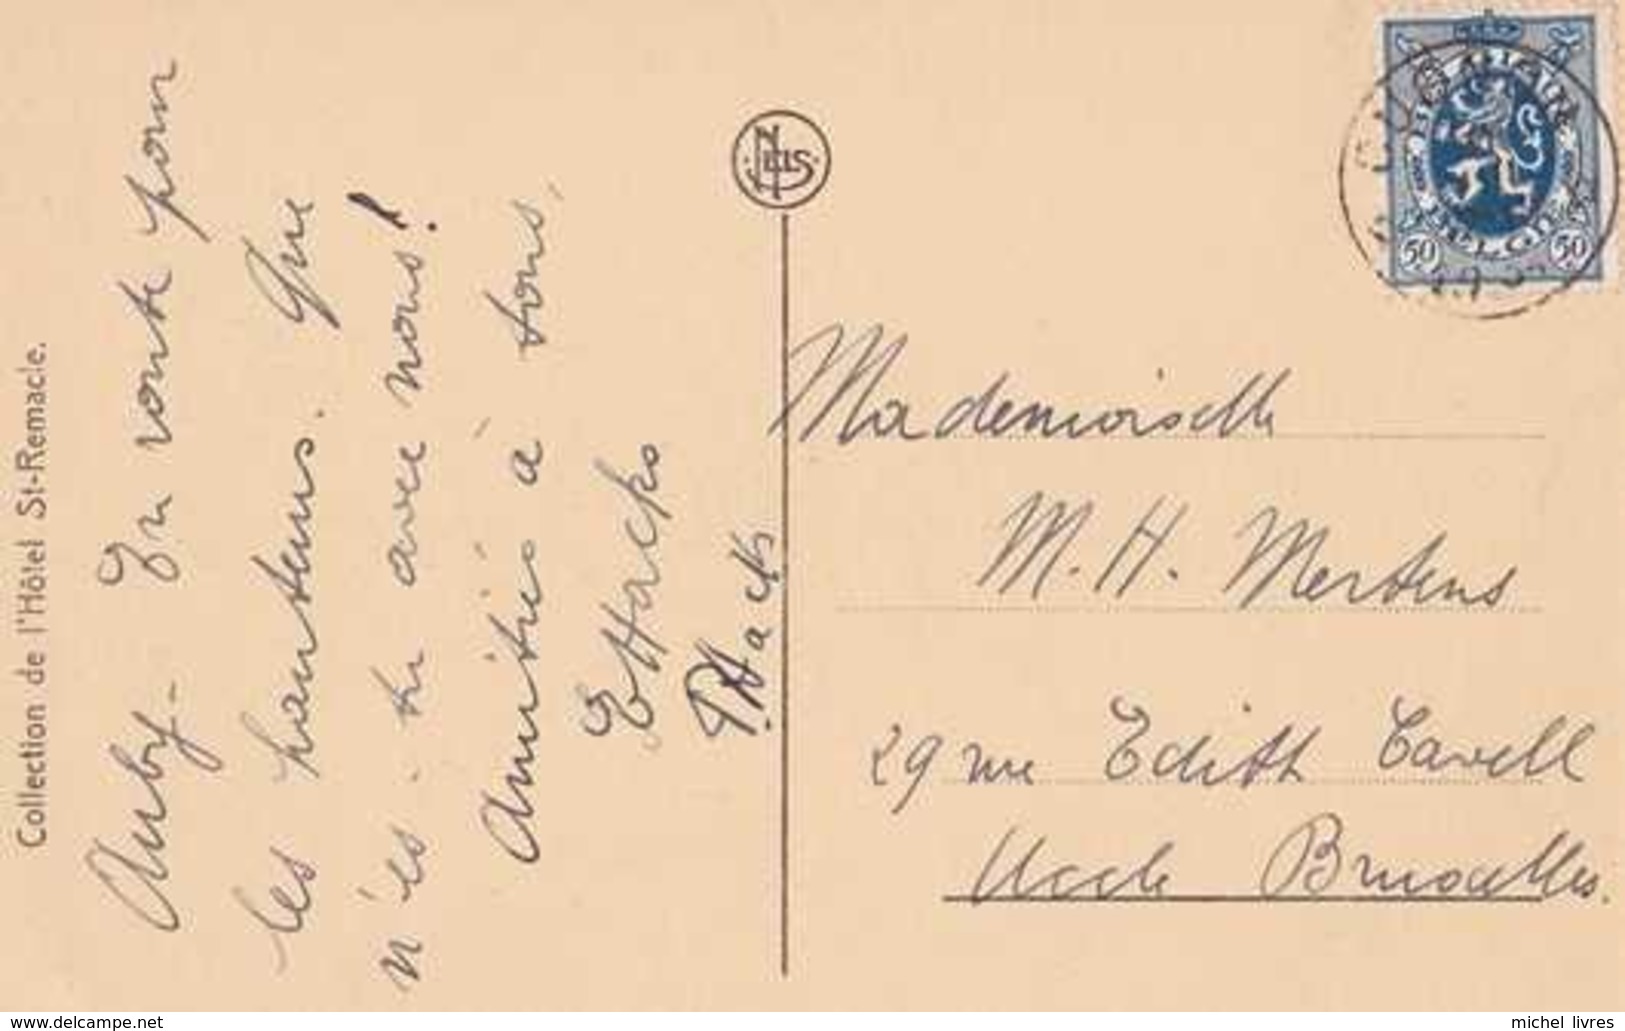 Collection de l'Hôtel St-Remacle.
Auby - En route pour
les hauteurs. Que
n'es-tu avec nous!
Amitiés à tous,
EHacks
P.Hacks
NELS
BELGIE
50 50
Mademoiselle
M. H. Mertens
29 rue Edith Cavell
Uccle Bruxelles.
www.delcampe.net
michel_livres